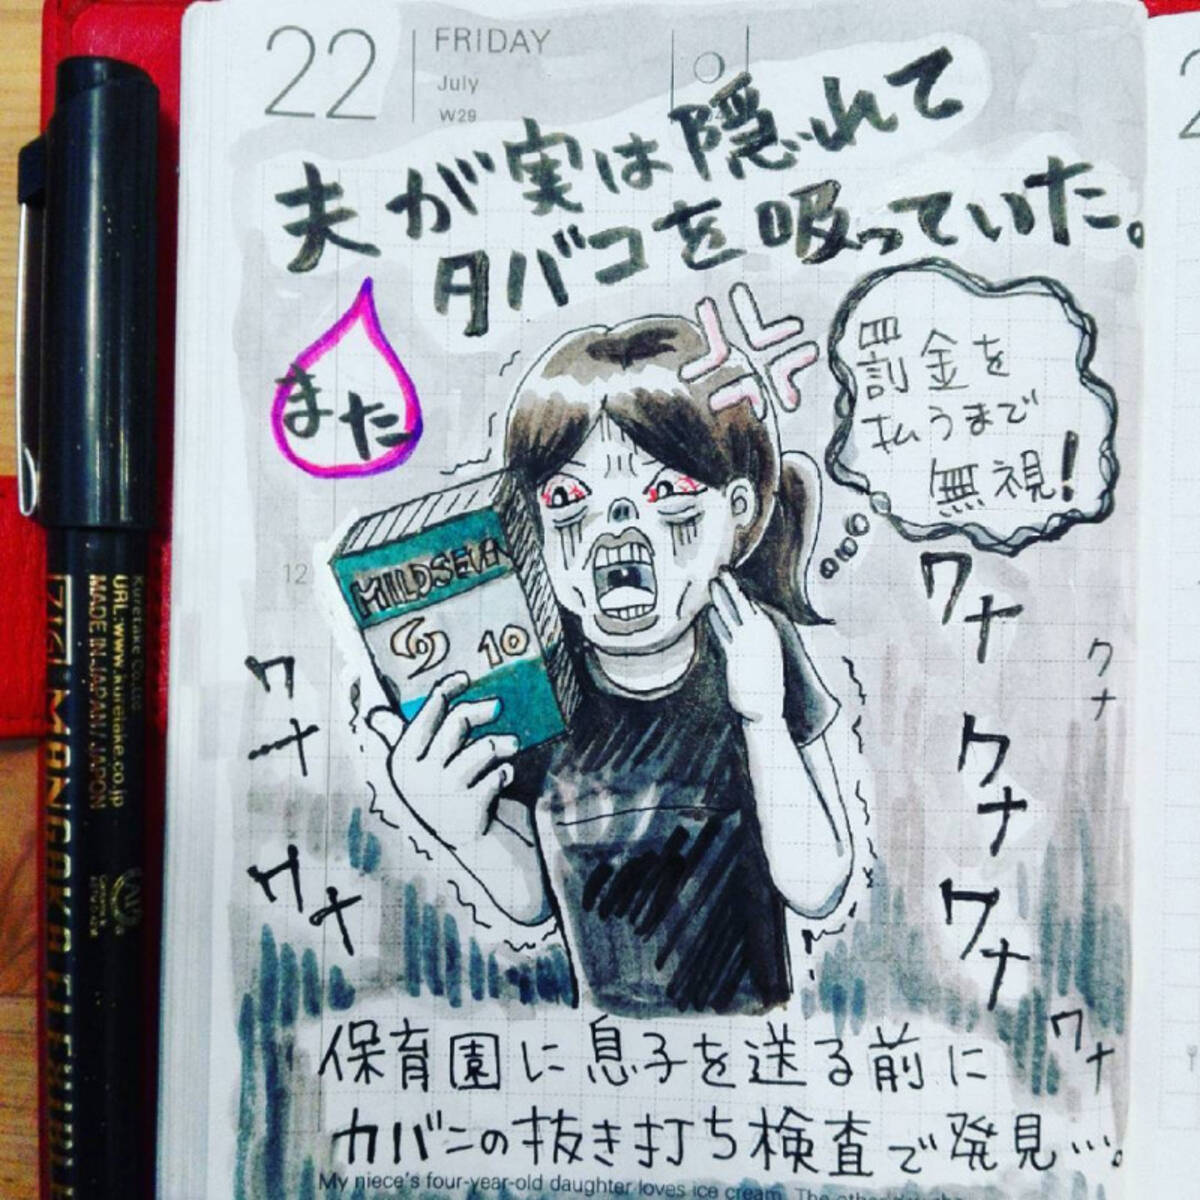 22
FRIDAY
July
W29
夫が実は隠れて
タバコを吸っていた。
また
罰金を
払うまで
無視!
MILDSEVEN
10
12
ワナ
ワナ
ワナ
ワナ
ワナ
ワナ
ワナ
保育園に息子を送る前に
カバンの抜き打ち検査で発見…。
My niece's four-year-old daughter loves ice cream. The other day she
Kuretake Co.,Ltd.
URL:www.kuretake.co.jp
MADE IN JAPAN/JAPON
ZIG MANGAKA FLEXIBLE